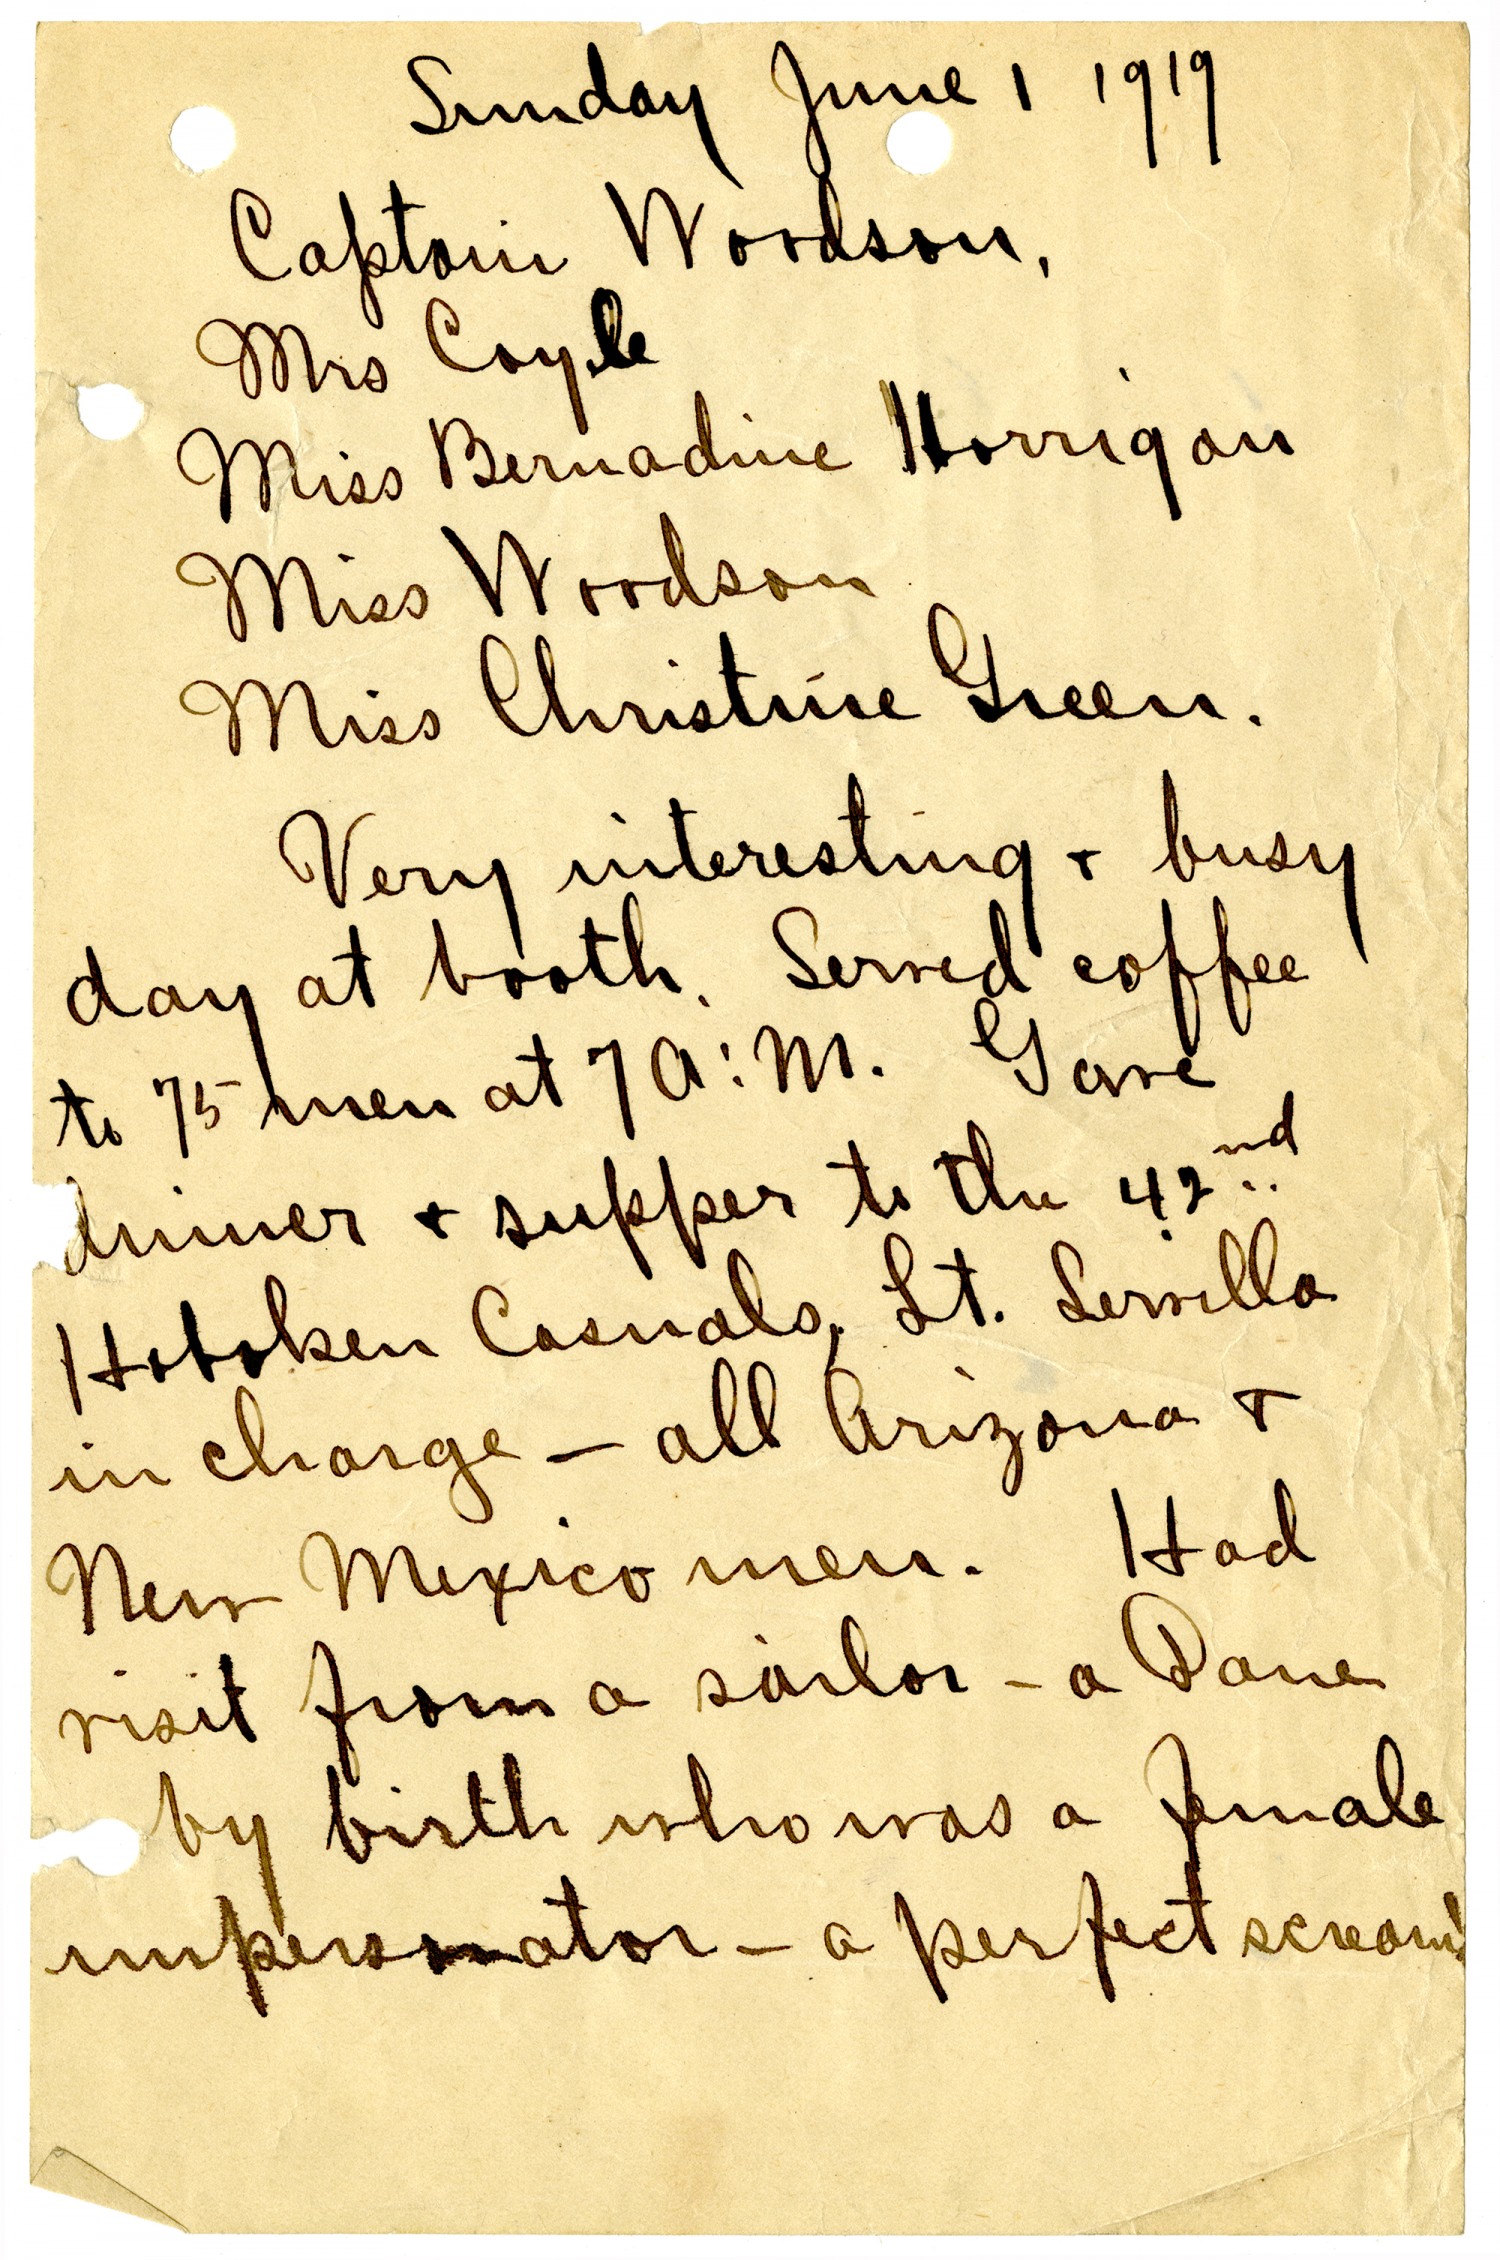 Sunday June 1 1919
Captain Woodson,
Mrs Coyle
Miss Bernadine Horrigan
Miss Woodson
Miss Christine Green.
Very interesting + busy
day at booth. Served coffee
to 75 men at 7 A.M. Gave
dinner + supper to the 42nd
Hoboken Casuals, Lt.
in charge — all Arizona +
New Mexico men. Had
visit from a sailor — a Dane
by birth who was a female
impersonator — a perfect scream!